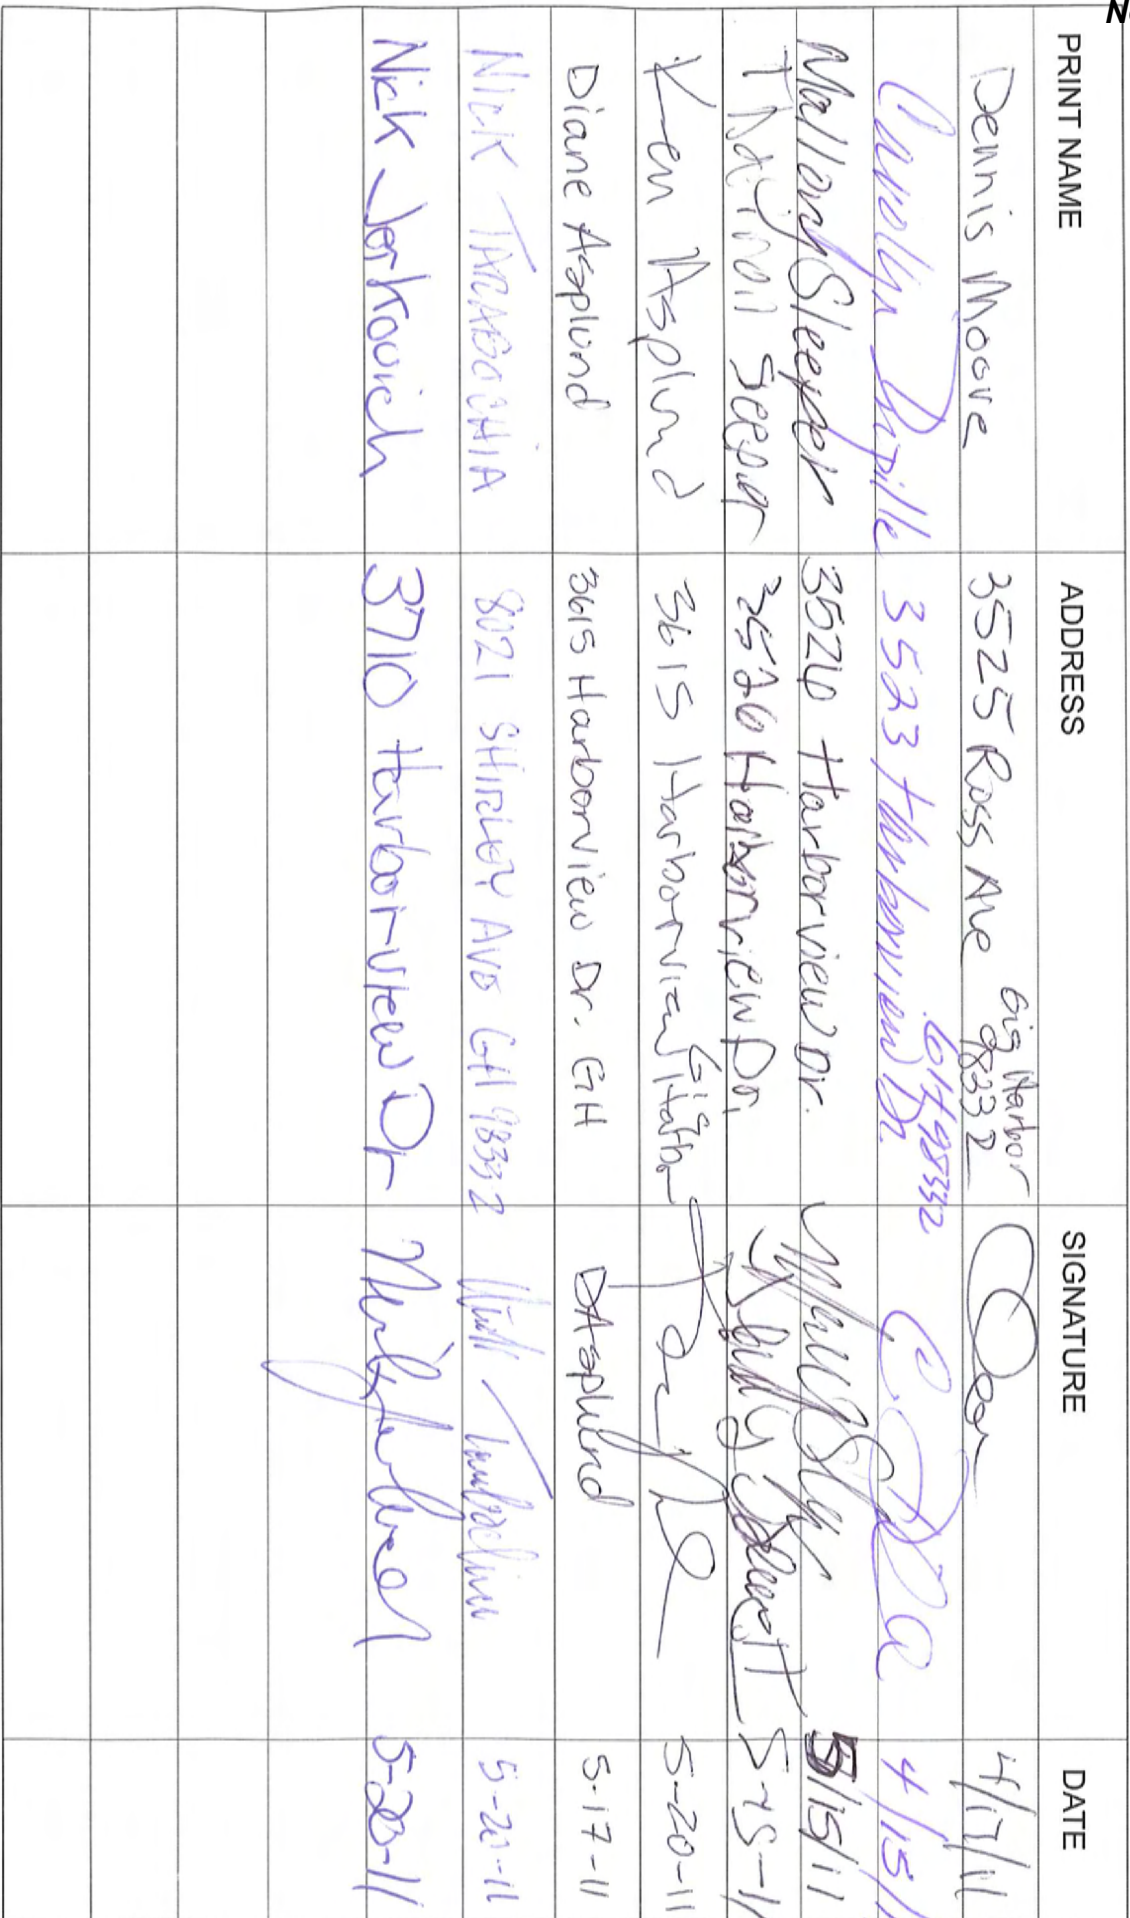 PRINT NAME ADDRESS SIGNATURE DATE
Dennis Moore 3525 Ross Ave Gig Harbor 98332 4/17/11
Carolyn Dupille 3523 Harborview Dr. GH 98332 4/15/1
Mallory Sleeper 3526 Harborview Dr. 5/15/11
3526 Harborview Dr. 5-15-1
Ken Asplund 3615 Harborview Gig Harbor 5-20-11
Diane Asplund 3615 Harborview Dr. GH DAsplund 5-17-11
NICK TARABOCHIA 8021 SHIRLEY AVE GH 98332 Nick Tarabochia 5-20-11
Nick Jerkovich 3710 Harborview Dr 5-20-11